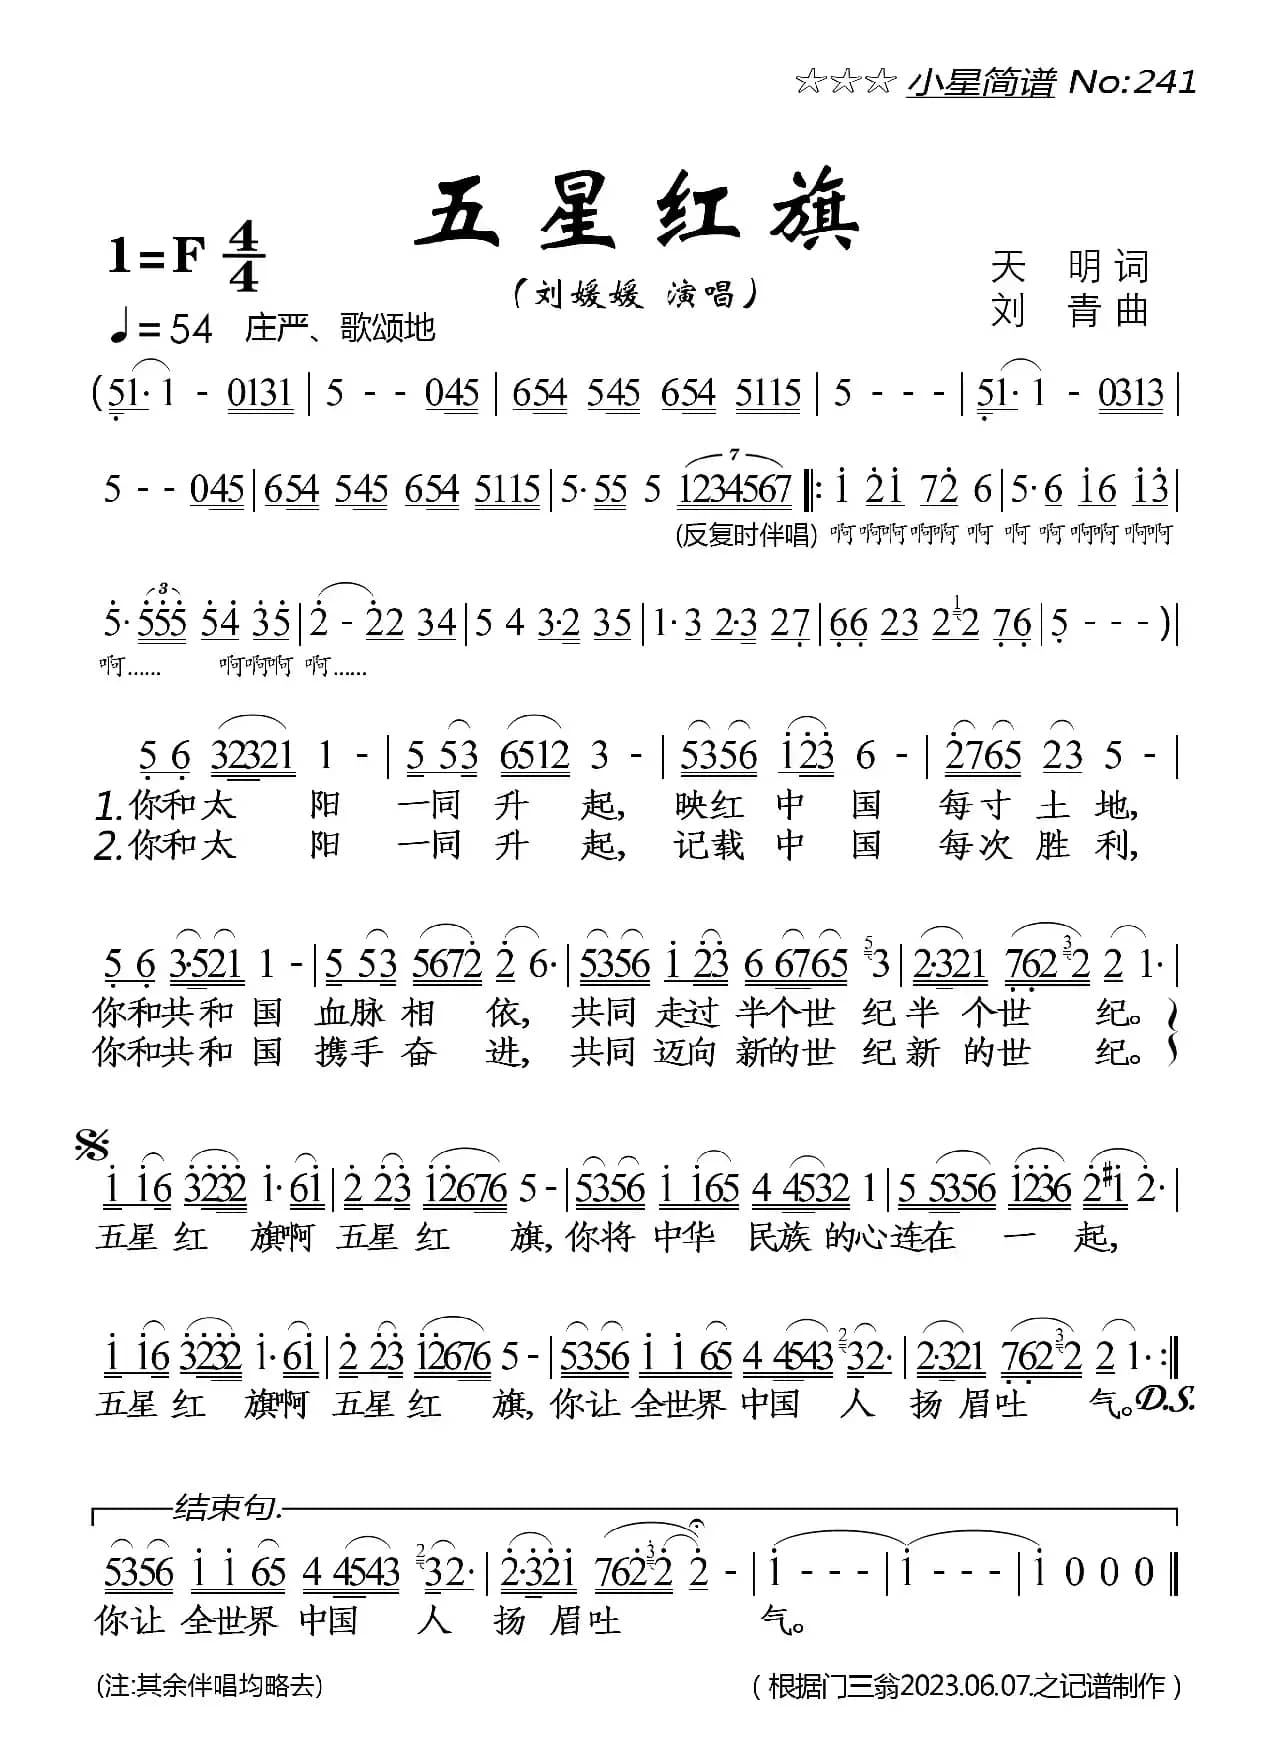 ☆☆☆ 小星简谱 No:241
五星红旗
1=F 4/4
天 明 词
(刘媛媛 演唱)
刘 青 曲
♩=54 庄严、歌颂地
(51· 1 - 0131 | 5 - - 045 | 654 545 654 5115 | 5 - - - | 51· 1 - 0313 |
5 - - 045 | 654 545 654 5115 | 5· 55 5 1234567 ‖: 1 21 72 6 | 5·6 16 13 |
(反复时伴唱) 啊 啊啊 啊啊 啊 啊 啊 啊啊 啊啊
5· 555 54 35 | 2 - 22 34 | 5 4 3·2 35 | 1·3 2·3 27 | 66 23 2 12 76 | 5 - - - ) |
啊…… 啊啊啊 啊……
5 6 32321 1 - | 5 53 6512 3 - | 5356 123 6 - | 2765 23 5 - |
1.你和太 阳 一同 升 起, 映红 中 国 每寸 土 地,
2.你和太 阳 一同 升 起, 记载 中 国 每次 胜 利,
5 6 3·521 1 - | 5 53 5672 2 6· | 5356 1 23 6 6765 53 | 2·321 762 32 2 1· |
你和共和 国 血脉 相 依, 共同 走过 半个世 纪半 个世 纪。
你和共和 国 携手 奋 进, 共同 迈向 新的世 纪新 的世 纪。
1 16 3232 1·61 | 2 23 12676 5 - | 5356 1 165 4 4532 1 | 5 5356 1236 2#1 2· |
五星 红 旗啊 五星 红 旗, 你将 中华 民族 的心连在 一 起,
1 16 3232 1·61 | 2 23 12676 5 - | 5356 1 1 65 4 4543 232· | 2·321 762 32 2 1· :‖
五星 红 旗啊 五星 红 旗, 你让 全世界 中国 人 扬 眉吐 气。D.S.
结束句.
5356 1 1 65 4 4543 232· | 2·321 762 32 2 - | 1 - - - | 1 - - - | 1 0 0 0 ‖
你让 全世界 中国 人 扬 眉吐 气。
(注:其余伴唱均略去)
(根据门三翁2023.06.07.之记谱制作)